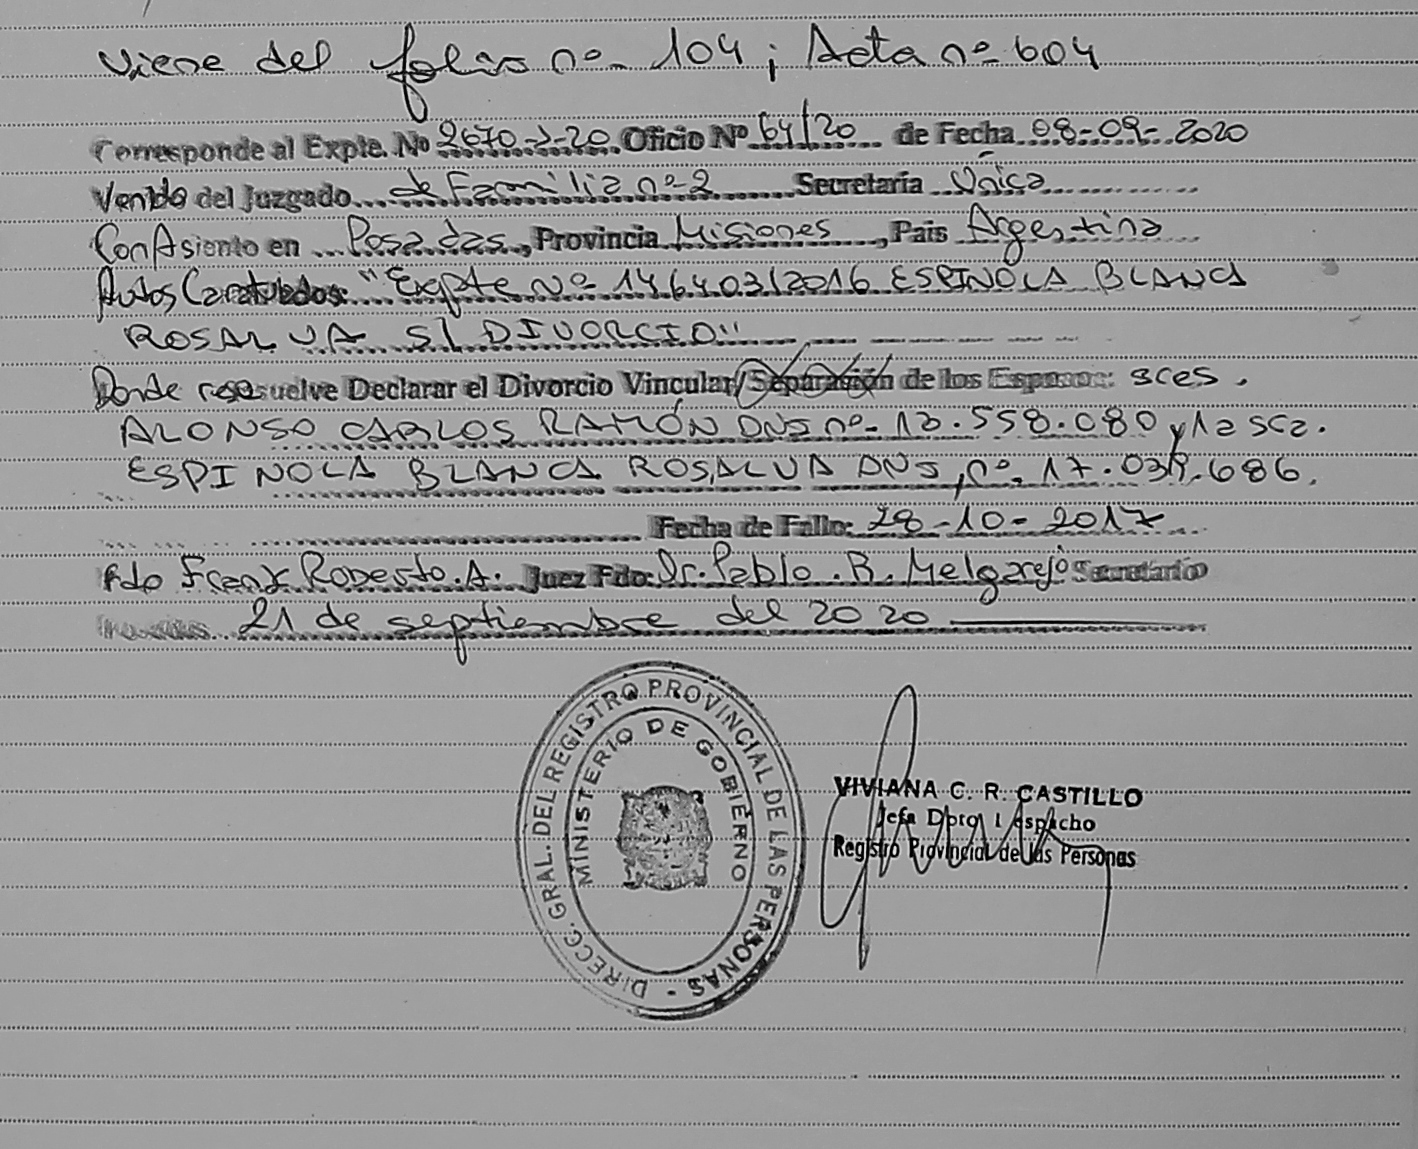 Viene del folio nº 104; Acta nº 604
Corresponde al Expte. Nº 2670-J-20 Oficio Nº 64/20 de Fecha 08-09-2020
Venido del Juzgado de Familia nº 2 Secretaría Única
Con Asiento en Posadas, Provincia Misiones, Pais Argentina
Autos Caratulados: "Expte Nº 146403/2016 ESPINOLA BLANCA
ROSALVA S/ DIVORCIO"
Donde resuelve Declarar el Divorcio Vincular/Separación de los Esposos: sres.
ALONSO CARLOS RAMÓN DNI nº 13.558.080 y la sra.
ESPINOLA BLANCA ROSALVA DNI nº 17.039.686.
Fecha de Fallo: 28-10-2017
Fdo Frank Roberto.A. Juez Fdo: Dr. Pablo.R. Melgarejo Secretario
21 de septiembre del 2020
DIRECC. GRAL. DEL REGISTRO PROVINCIAL DE LAS PERSONAS -
MINISTERIO DE GOBIERNO
VIVIANA C. R. CASTILLO
Jefa Dpto. Despacho
Registro Provincial de las Personas